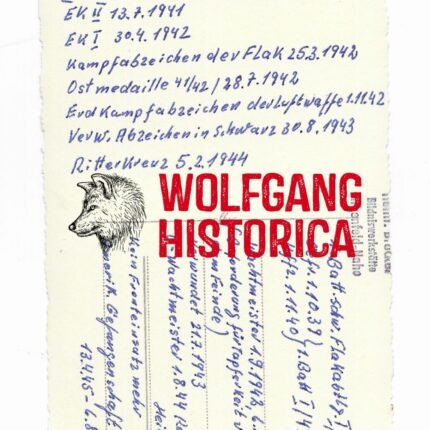 EK II 13.7.1941
EK I 30.4.1942
Kampfabzeichen der Flak 25.3.1942
Ostmedaille 41/42 / 28.7.1942
Erdkampfabzeichen der Luftwaffe 1.11.42
Verw. Abzeichen in Schwarz 30.8.1943
Ritterkreuz 5.2.1944
WOLFGANG
HISTORICA
Bildniswerkstätte
1.10.39
1.11.40) 1.Batt I/4
wachtmeister 1.9.1942
für Tapferkeit v
Feinde)
wundet 21.7.1943
Wachtmeister 1.8.44
Kein Fronteinsatz mehr
amerik. Gefangenschaft
13.4.45-